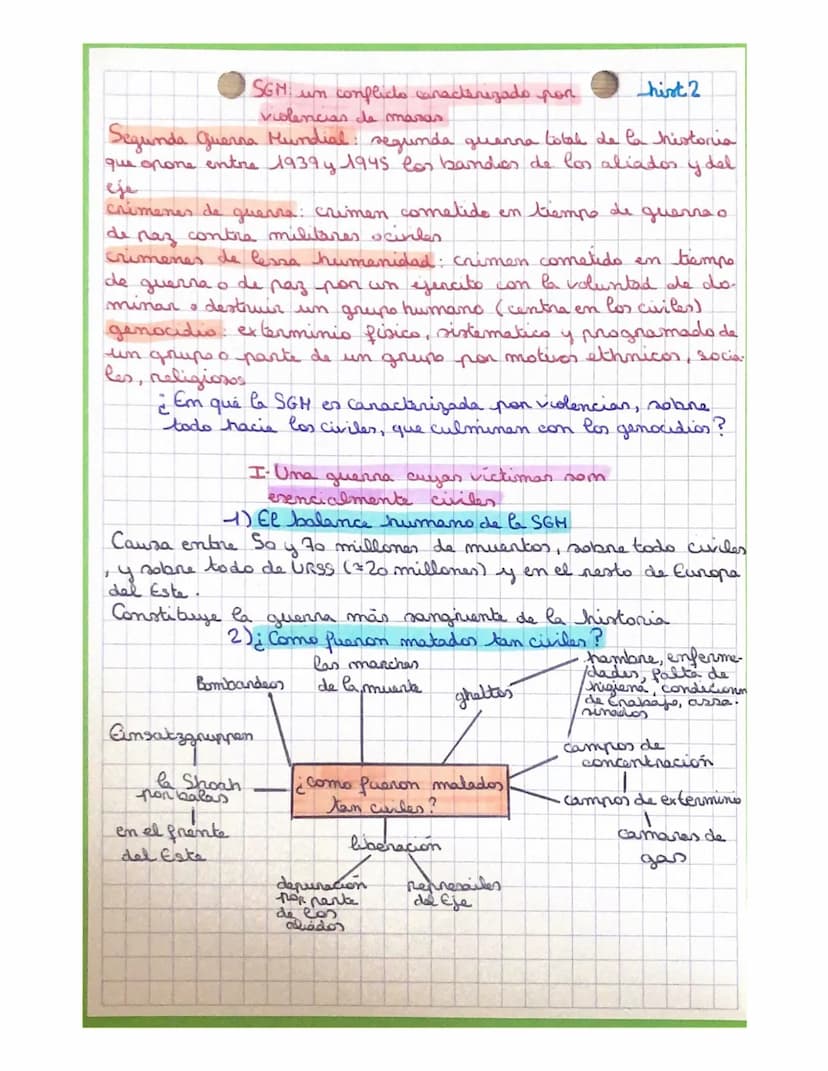 SGM: un conflicto caracterizado por
hist 2
violencias de masas
Segunda Guerra Mundial: segunda guerra total de la historia
que opone entre 1939 y 1945 los bandos de los aliados y del
eje
crimenes de guerra: crimen cometido en tiempo de guerra o
de paz contra militares o civiles
crimenes de lessa humanidad: crimen cometido en tiempo
de guerra o de paz por un ejercito con la voluntad de do-
minar o destruir un grupo humano (centra en los civiles)
genocidio: exterminio físico, sistematico y programado de
un grupo o parte de un grupo por motivos ethnicos, socia-
les, religiosos
¿Em qué la SGM es caracterizada por violencias, sobre
todo hacia los civiles, que culminan con los genocidios?
I- Una guerra cuyas víctimas som
esencialmente civiles
1) El balance humano de la SGM
Causa entre 50 y 70 millones de muertos, sobre todo civiles
, y sobre todo de URSS (≈20 millones) y en el resto de Europa
del Este.
Constituye la guerra más sangriente de la historia
2) ¿Como fueron matados tan civiles?
las marchas
de la muerte
Bombardeos
ghettos
hambre, enferme-
dades, falta de
higiena, condiciones
de trabajo, assa-
sinados
Einsatzgruppen
la Shoah
por balas
en el frente
del Este
¿como fueron matados
tan civiles?
campos de
concentración
campos de exterminio
camaras de
gas
liberación
depuración
por parte
de los
aliados
represailes
del Eje